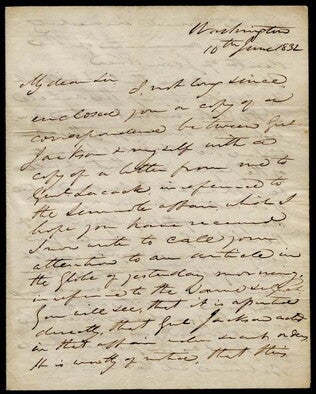 Washington
10th June 1831
My dear Sir I not long since
enclosed you a copy of a
correspondence between Genl
Jackson & myself with a
copy of a letter from me to
Genl Lacock in reference to
the Seminole affair, which I
hope you have received.
I now write to call your
attention to an article in
the Globe of yesterday morning,
in reference to the same subject.
You will see, that it is asserted
directly, that Genl Jackson acted
in that affair under secret orders.
It is worthy of notice, that this